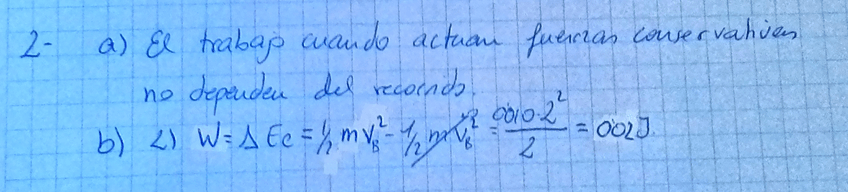 2- a) El trabajo cuando actuan fuerzas conservativas
no dependen del recorrido.
b) 2) W = Δ Ec = 1/2 m V_B^2 - 1/2 m V_B^2 = 0'010·2^2/2 = 0'02J